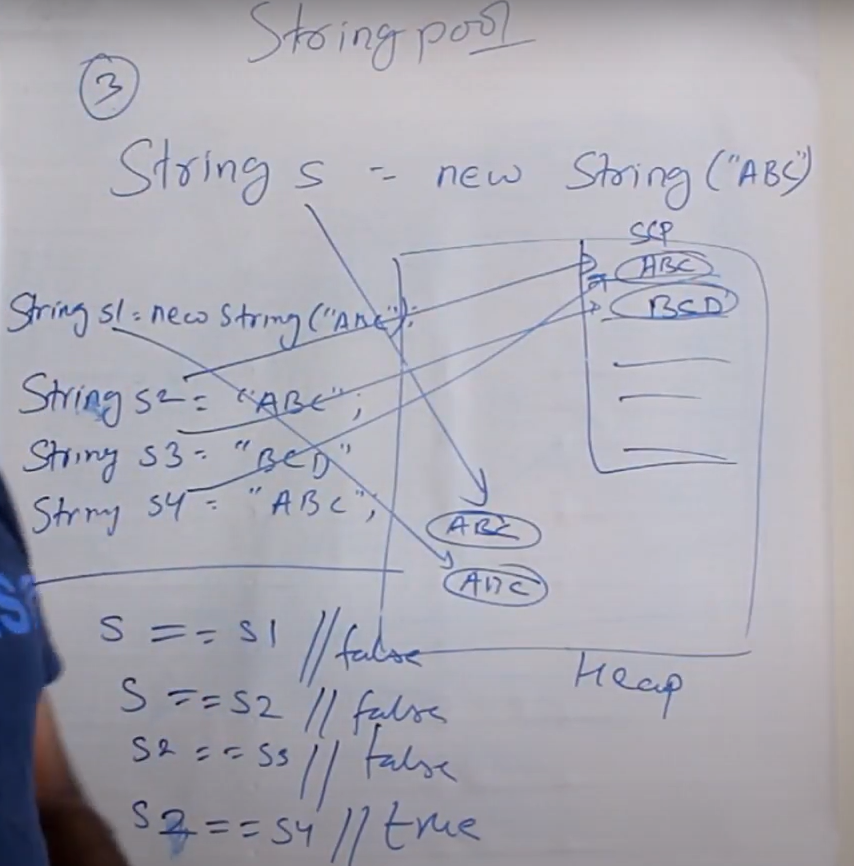 String pool
3
String s = new String ("ABC")
SCP
ABC
BCD
String s1 = new String ("ABC");
String s2 = "ABC";
String s3 = "BCD"
String s4 = "ABC";
ABC
ABC
s == s1 // false
Heap
s == s2 // false
s2 == s3 // false
s2 == s4 // true